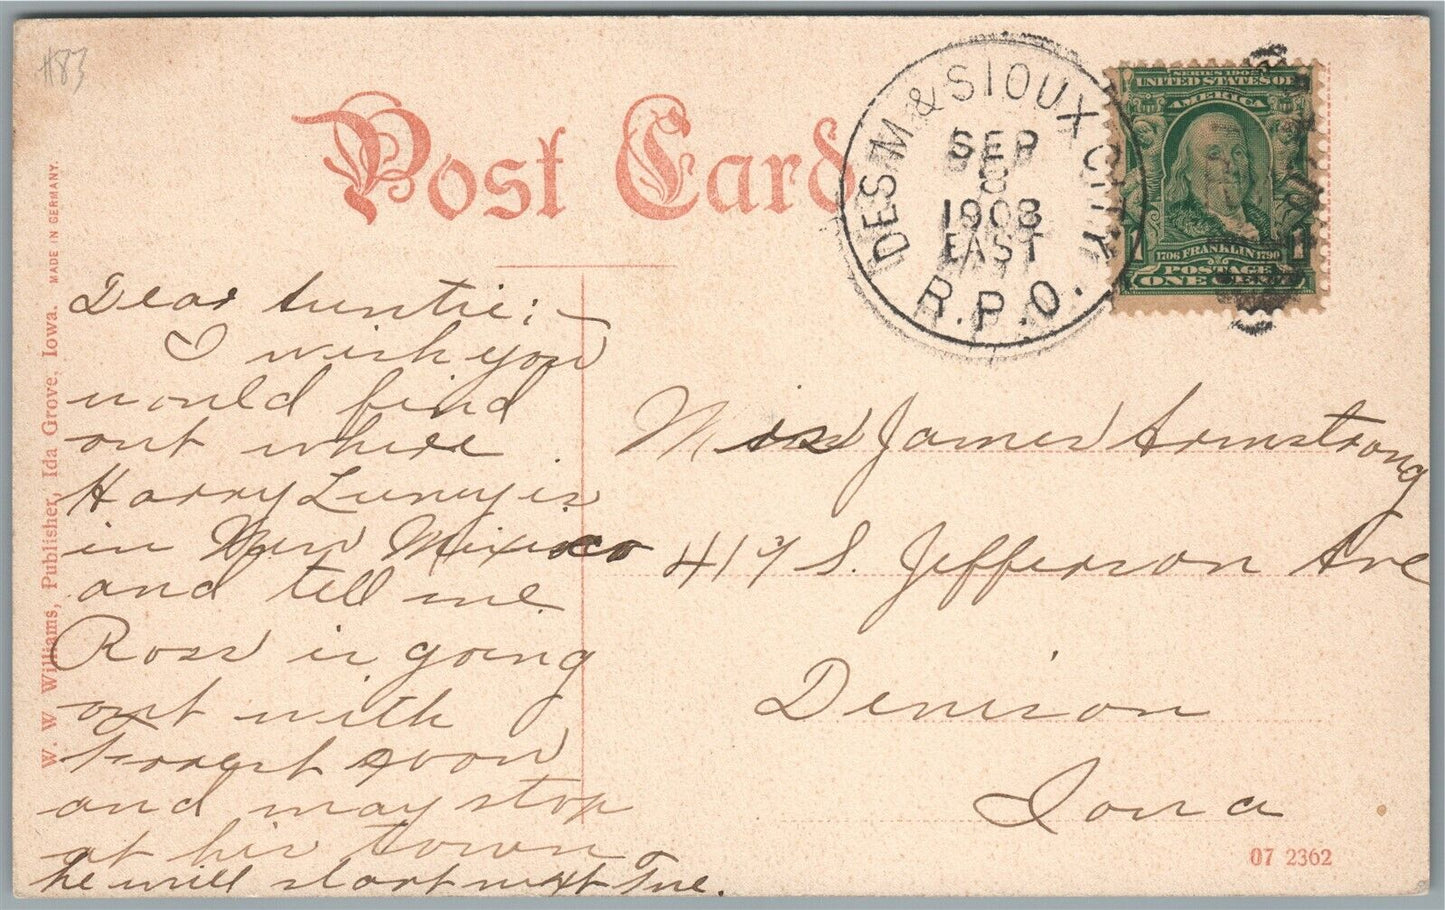 #83
Post Card
DES M. & SIOUX CITY
SEP
8
1908
EAST
R.P.O.
SERIES 1902
UNITED STATES OF
AMERICA
1706 FRANKLIN 1790
POSTAGE
ONE CENT
W. W Williams, Publisher, Ida Grove, Iowa. MADE IN GERMANY.
Dear Auntie; —
I wish you
would find
out where
Harry Luney is
in New Mexico
and tell me
Ross is going
out with
Forrest soon
and may stop
at his town
he will start next Tue.
James Armstrong
417 S. Jefferson Ave
Denison
Iowa
07 2362